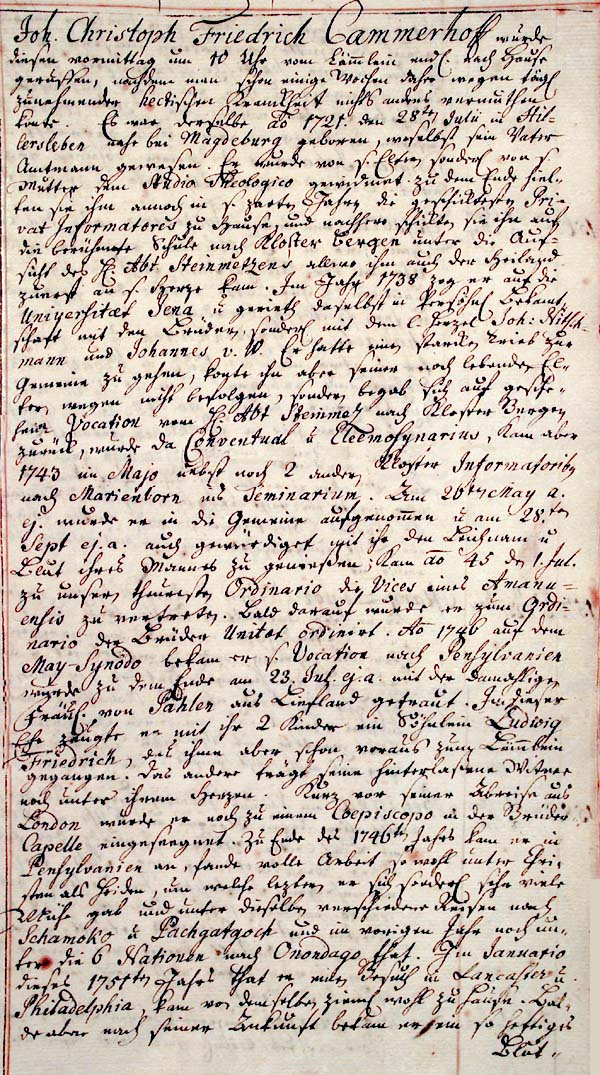 Joh. Christoph Friedrich Cammerhoff wurde
diesen vormittag um 10 Uhr vom Lämlein endl. nach Hause
geruffen, nachdem man schon einige Wochen daher wegen tägl.
zunehmender hectischen Krankheit nichts anders vermuthen
konte. Es war derselbe Aõ 1721. den 28ten Julii in Hil-
lersleben nahe bei Magdeburg geboren, woselbst sein Vater
Amtmann gewesen. Er wurde von s. Eltern sonderl. von s.
Mutter dem Studio Theologico gewidmet. zu dem Ende hiel-
ten sie ihm annoch in s. zarten Jahren die geschicktesten Pri-
vat Informatores zu Hause, und nachhero schickten sie ihn auf
die berühmte Schule nach Kloster Bergen unter die Auf-
sicht des H. Abt Steinmetzens allwo ihm auch der Heiland
zuerst an s. Herze kam. Im Jahr 1738 zog er auf die
Universitæt Jena, u. gerieth daselbst in Persöhnl. Bekant-
schaft mit den Brüdern, sonderl. mit dem l. Herzel Joh. Nitsch-
mann und Johannes v. W. Er hatte einen starken Trieb zur
Gemeine zu gehen, konte ihn aber seiner noch lebenden El-
tern wegen nicht befolgen, sondern begab sich auf gesche-
hene Vocation vom H. Abt Steinmetz nach Kloster Bergen
zurück, wurde da Conventual u. Eleemosynarius, kam aber
1743 im Majo nebst noch 2 andern Kloster Informatoribus
nach Marienborn ins Seminarium. Am 26ten May a.
ej. wurde er in die Gemeine aufgenommen u. am 28.ten
Sept ej. a. auch gewürdiget mit ihr den Leichnam u.
Blut ihres Mannes zu geniessen; kam aõ 45 den 1. Jul.
zu unserm theuresten Ordinario die Vices eines Amanu-
ensis zu vertreten. Bald darauf wurde er zum Ordi-
nario der Brüder Unitæt ordinirt. Aõ 1746 auf dem
May Synodo bekam er s. Vocation nach Pensylvanien
wurde zu dem Ende am 23. Jul. ej. a. mit der damaligen
Fräul. von Pahlen aus Liefland getraut. In dieser
Ehe zeugte er mit ihr 2 Kinder ein Söhnlein Ludwig
Friedrich, das ihm aber schon voraus zum Lämlein
gegangen. Das andere trägt seine hinterlassene Witwe
noch unter ihrem Herzen. Kurz vor seiner Abreise aus
London wurde er noch zu einem Coepiscopo in der Brüder
Capelle eingesegnet. Zu Ende des 1746ten Jahrs kam er in
Pensylvanien an, fande volle Arbeit so wohl unter Chri-
sten als Heiden, um welche leztern er sich sonderl. sehr viele
Mühe gab und unter dieselben verschiedene Reisen nach
Schamoko u. Pachgatgoch und im vorigen Jahr noch un-
ter die 6 Nationen nach Onondago that. Im Januario
dieses 1751ten Jahrs that er einen Besuch in Lancaster u.
Philadelphia, kam von demselben zieml. wohl zu Hause. Bal-
de aber nach seiner Ankunft bekam er ein so heftiges
Blut-